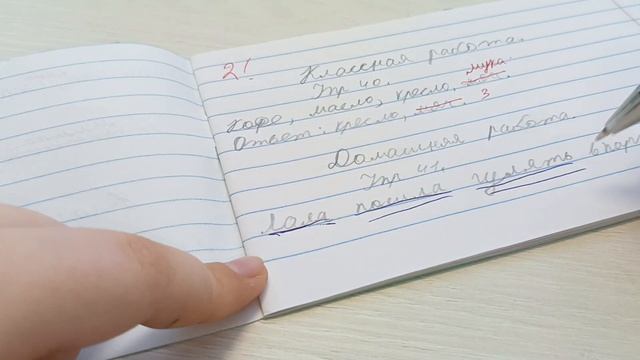 2!
Классная работа.
Упр 40.
мука
Кофе, масло, кресло,
Ответ: кресло, 3
Домашняя работа.
Упр 41.
Лала пошла гулять в пар